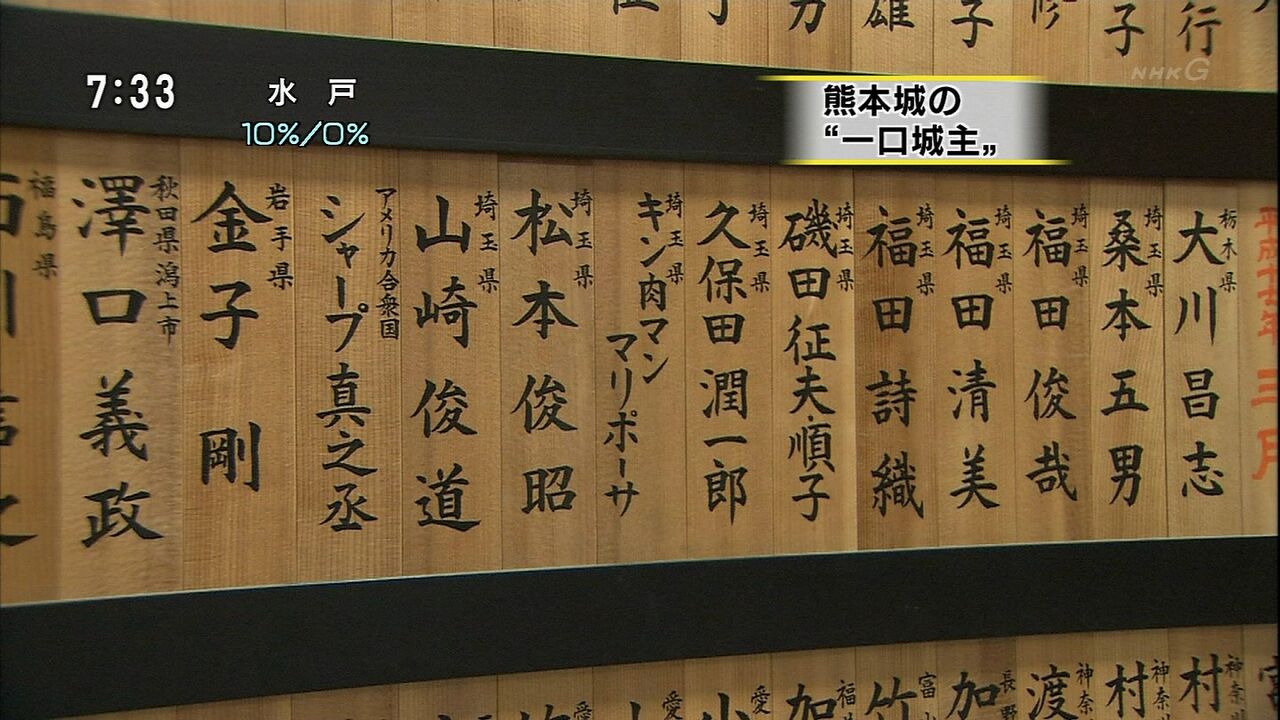 7:33
水戸
10%/0%
NHKG
熊本城の
“一口城主„
子
行
平成十七年 三月
栃木県
大川昌志
埼玉県
桑本五男
埼玉県
福田俊哉
埼玉県
福田清美
埼玉県
福田詩織
埼玉県
磯田征夫・順子
埼玉県
久保田潤一郎
埼玉県
キン肉マン
マリポーサ
埼玉県
松本俊昭
埼玉県
山崎俊道
アメリカ合衆国
シャープ真之丞
岩手県
金子剛
秋田県潟上市
澤口義政
福島県
神奈
村
神奈
村
神奈
渡
長野
加
富山
竹
福
加
愛
愛